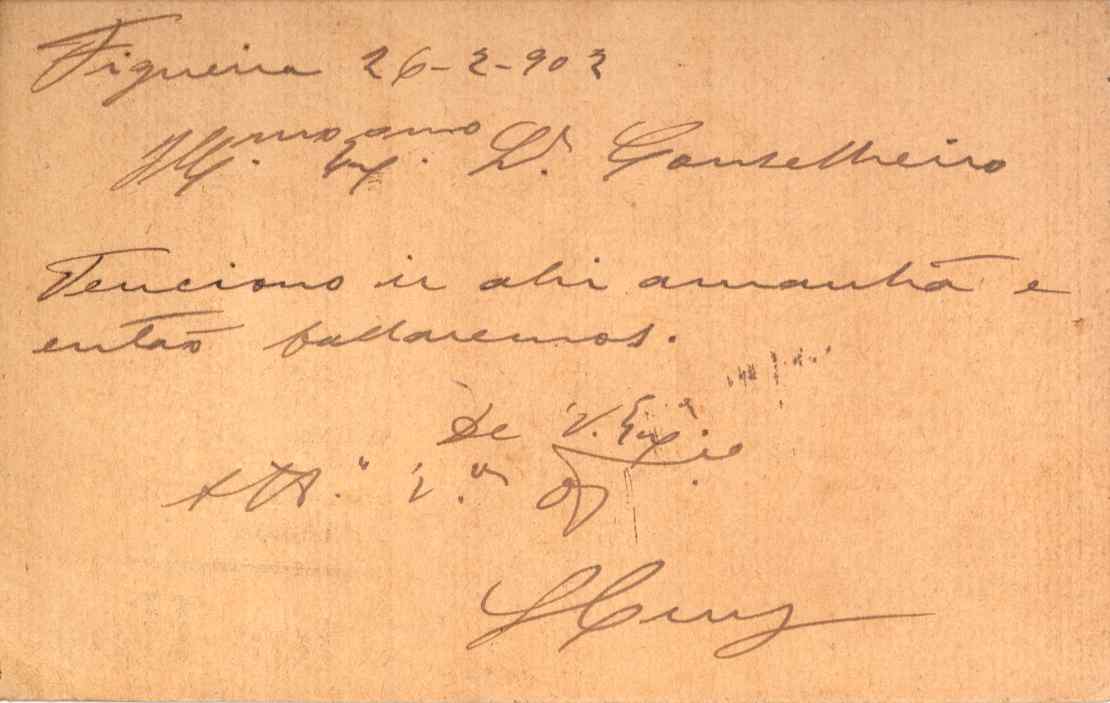 Figueira 26-2-902
Ill.mo Ex.mo Sr. Conselheiro
Tenciono ir ahi amanhã e
então fallaremos.
De V. Ex.cia
Att.o V.or